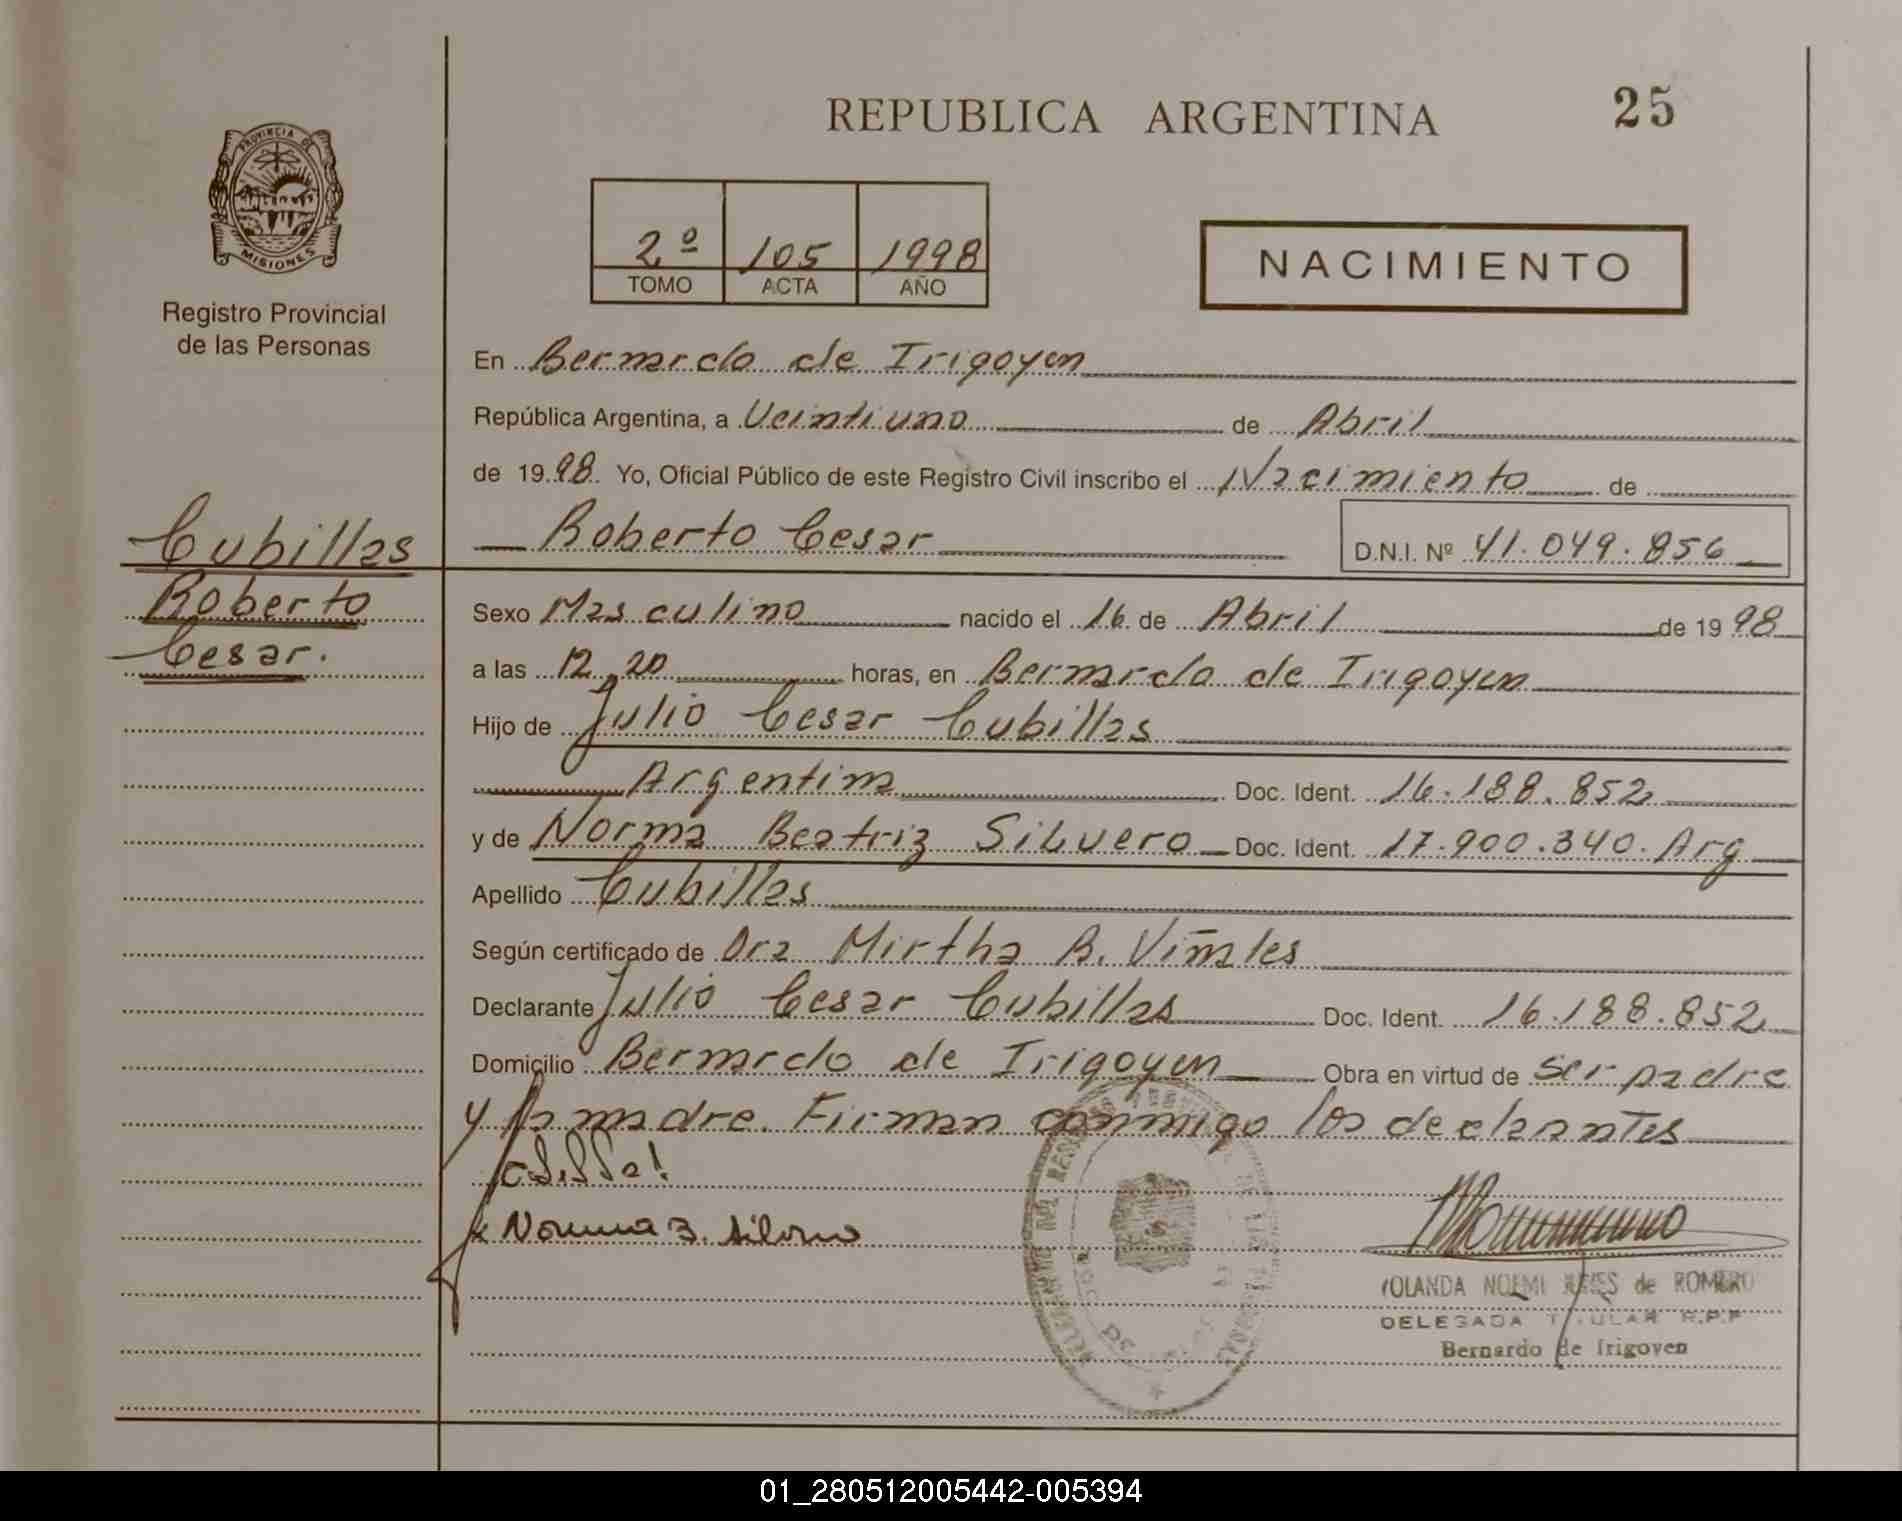 REPUBLICA ARGENTINA
25
PROVINCIA DE
MISIONES
Registro Provincial
de las Personas
2º 105 1998
TOMO ACTA AÑO
NACIMIENTO
En Bernardo de Irigoyen
República Argentina, a Veintiuno de Abril
de 1998 Yo, Oficial Público de este Registro Civil inscribo el Nacimiento de
Roberto Cesar D.N.I. Nº 41.049.856
Cubillas
Roberto
Cesar.
Sexo Masculino nacido el 16 de Abril de 1998
a las 12 20 horas, en Bernardo de Irigoyen
Hijo de Julio Cesar Cubillas
Argentina Doc. Ident. 16.188.852
y de Norma Beatriz Silvero Doc. Ident. 17.900.340. Arg
Apellido Cubillas
Según certificado de Dra Mirtha R. Viñales
Declarante Julio Cesar Cubillas Doc. Ident. 16.188.852
Domicilio Bernardo de Irigoyen Obra en virtud de ser padre
y la madre. Firman conmigo los declarantes
Norma B. Silvero
YOLANDA NOEMI de ROMERO
DELEGADA TITULAR R.P.P
Bernardo de Irigoyen
01_280512005442-005394